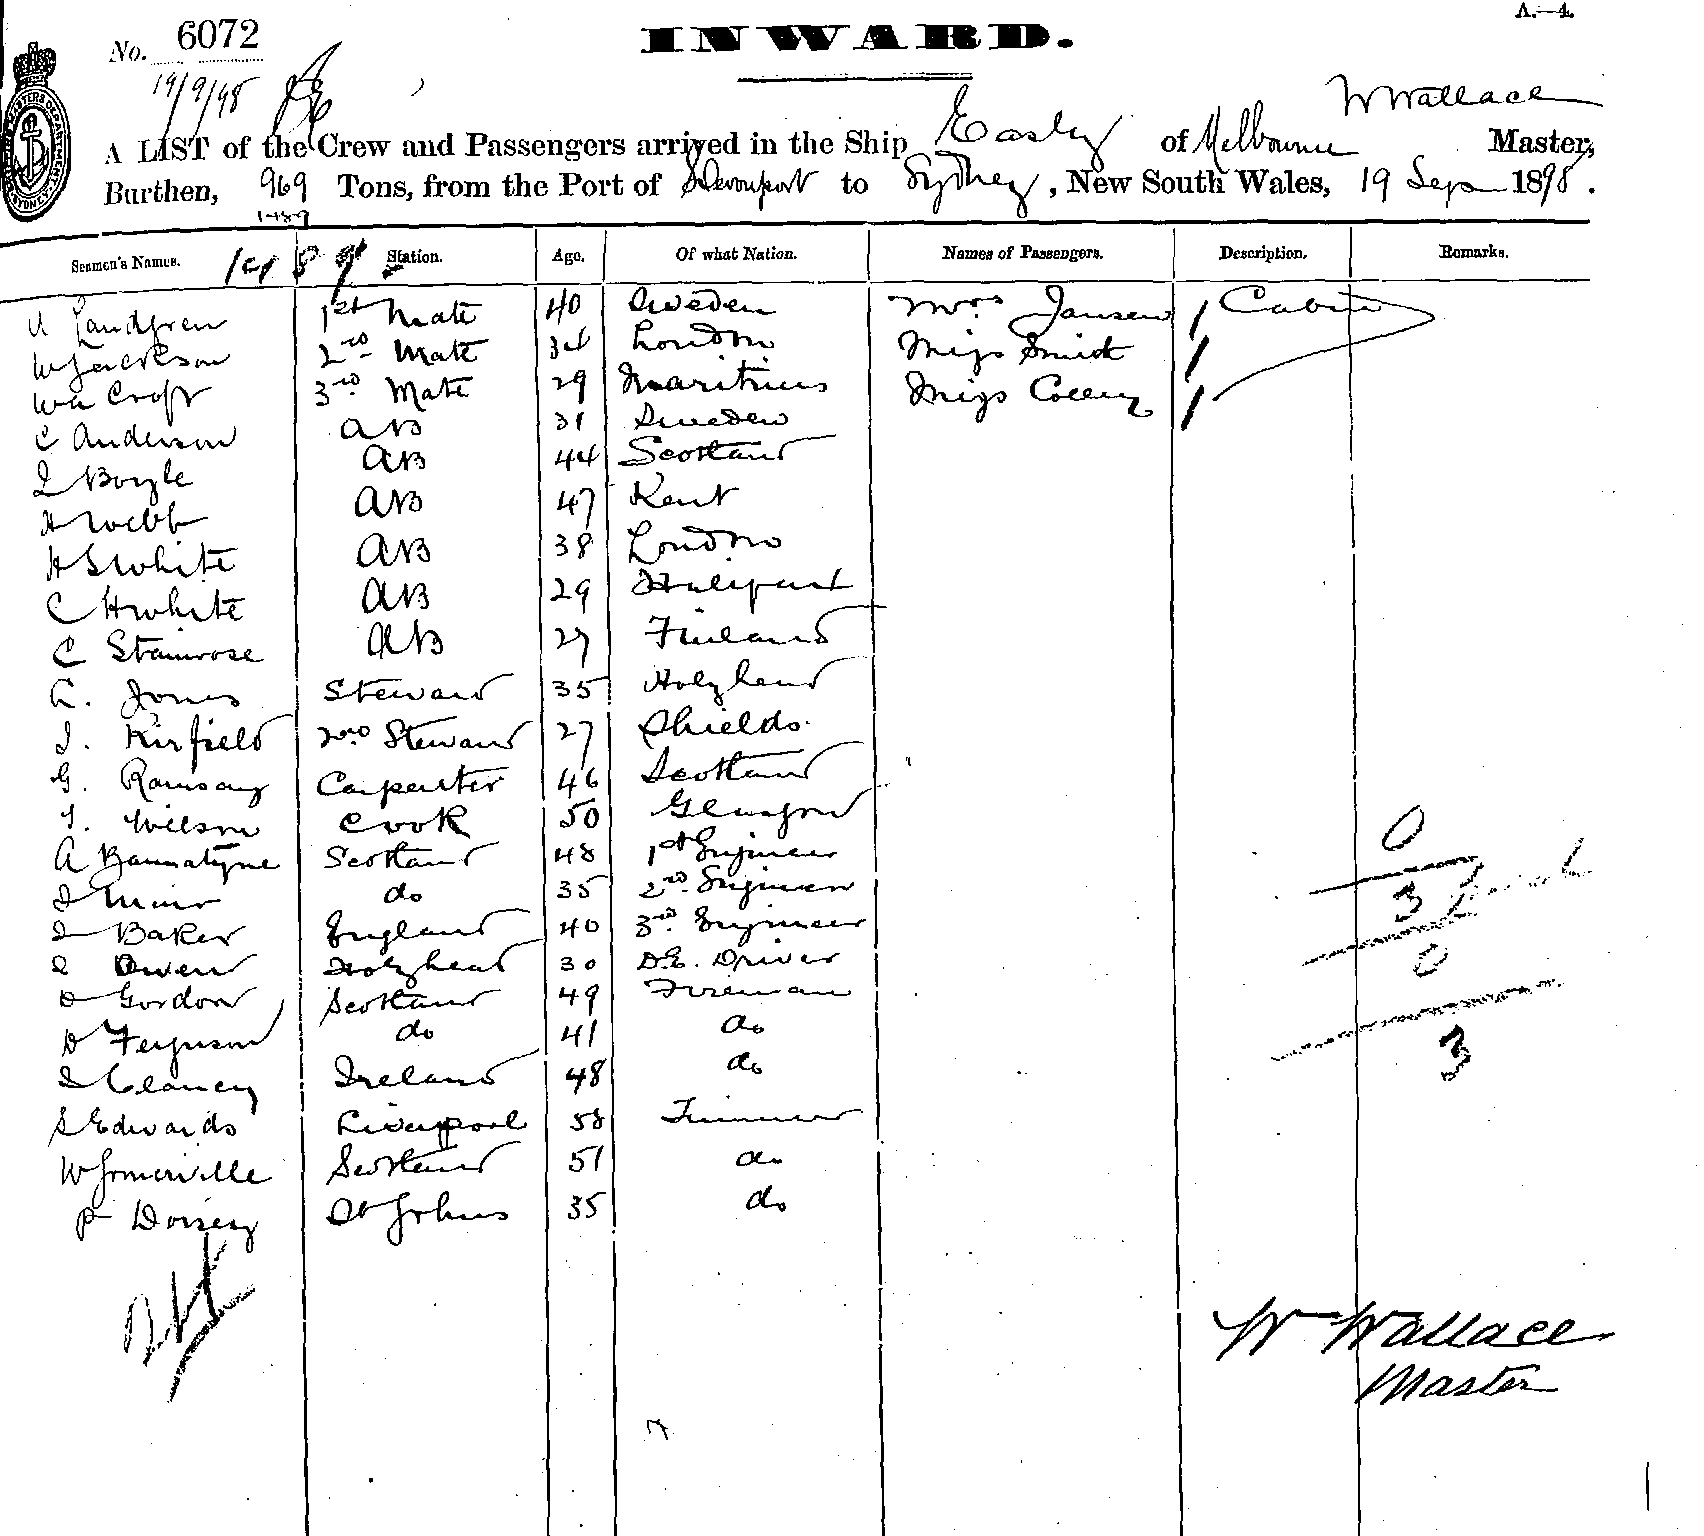 A.—4.
No. 6072
INWARD.
19/9/98
W Wallace
A LIST of the Crew and Passengers arrived in the Ship Easby of Melbourne Master,
Burthen, 969 Tons, from the Port of Devonport to Sydney, New South Wales, 19 Sep 1898.
1489
Seamen's Names. 1489 Station. Age. Of what Nation. Names of Passengers. Description. Remarks.
Landgren 1st Mate 40 Sweden Mrs Jansen 1 Cabin
W Jackson 2nd Mate 34 London Miss Smith 1
Wm Croft 3rd Mate 29 Mauritius Miss Colley 1
C Anderson AB 31 Sweden
J Boyle AB 44 Scotland
H Webb AB 47 Kent
H S White AB 38 London
C H White AB 29
C Stainrose AB 27 Finland
Jones Steward 35 Holyhead
J. Kirfield 2nd Steward 27 Shields
G. Ramsay Carpenter 46 Scotland
Wilson Cook 50 Glasgow
A Bannatyne Scotland 48 1st Engineer
J Muir do 35 2nd Engineer
J Baker England 40 3rd Engineer
Owen Holyhead 30 D.E. Driver
D Gordon Scotland 49 Fireman
D Ferguson do 41 do
J Clancy Ireland 48 do
S Edwards Liverpool 58 Trimmer
W Somerville Scotland 51 do
P Dorsey St Johns 35 do
0
3
0
3
W Wallace
Master